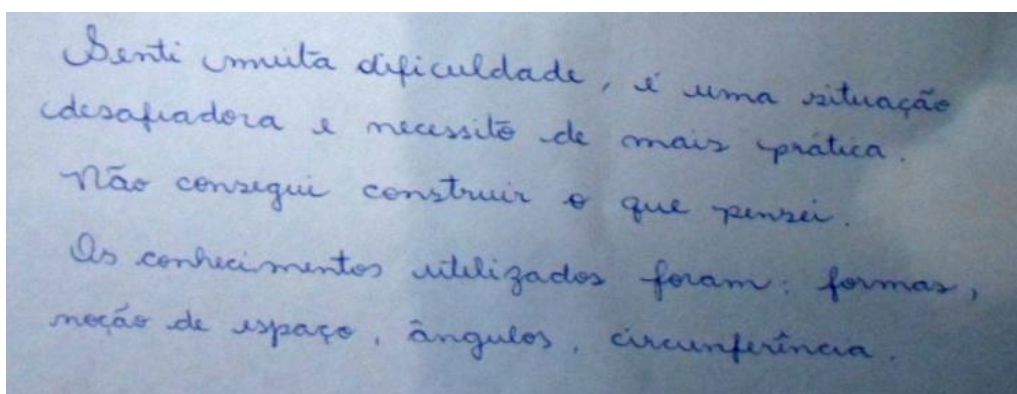 Senti muita dificuldade, é uma situação
desafiadora e necessito de mais prática.
Não consegui construir o que pensei.
Os conhecimentos utilizados foram: formas,
noção de espaço, ângulos, circunferência.